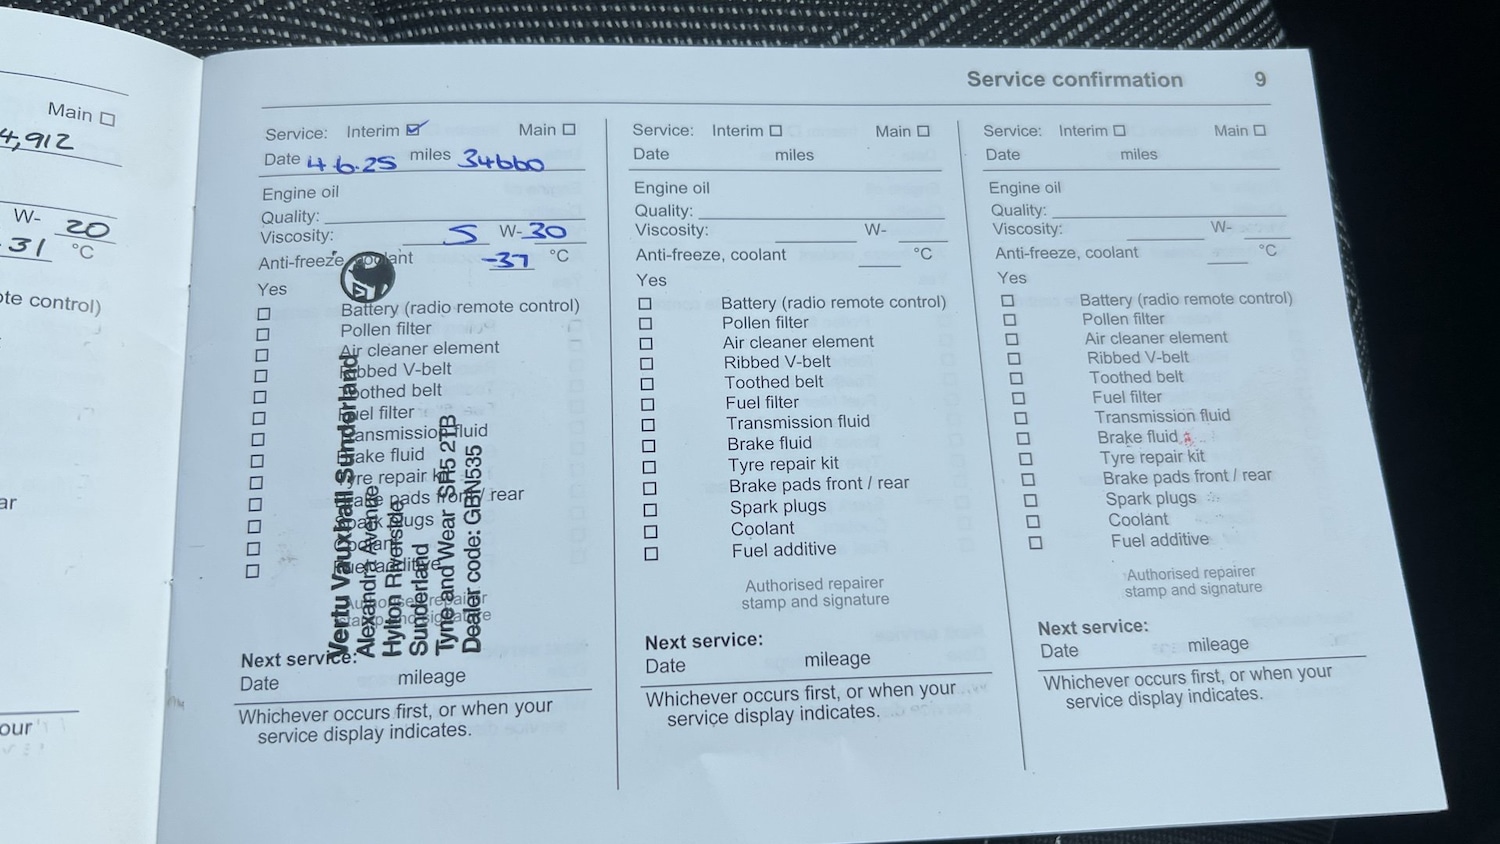 Main ☐
4,912
W- 20
31 °C
ote control)
ar
our
Service confirmation 9
Service: Interim ☑ Main ☐
Date 4.6.25 miles 34660
Engine oil
Quality:
Viscosity: 5 W- 30
Anti-freeze, coolant -37 °C
Yes
☐ Battery (radio remote control)
☐ Pollen filter
☐ Air cleaner element
☐ Ribbed V-belt
☐ Toothed belt
☐ Fuel filter
☐ Transmission fluid
☐ Brake fluid
☐ Tyre repair kit
☐ Brake pads front / rear
☐ Spark plugs
☐ Coolant
☐ Fuel additive
Authorised repairer
stamp and signature
Vertu Vauxhall Sunderland
Alexandra Avenue
Hylton Riverside
Sunderland
Tyne and Wear SR5 2TB
Dealer code: GBN535
Next service:
Date mileage
Whichever occurs first, or when your
service display indicates.
Service: Interim ☐ Main ☐
Date miles
Engine oil
Quality:
Viscosity: W-
Anti-freeze, coolant °C
Yes
☐ Battery (radio remote control)
☐ Pollen filter
☐ Air cleaner element
☐ Ribbed V-belt
☐ Toothed belt
☐ Fuel filter
☐ Transmission fluid
☐ Brake fluid
☐ Tyre repair kit
☐ Brake pads front / rear
☐ Spark plugs
☐ Coolant
☐ Fuel additive
Authorised repairer
stamp and signature
Next service:
Date mileage
Whichever occurs first, or when your
service display indicates.
Service: Interim ☐ Main ☐
Date miles
Engine oil
Quality:
Viscosity: W-
Anti-freeze, coolant °C
Yes
☐ Battery (radio remote control)
☐ Pollen filter
☐ Air cleaner element
☐ Ribbed V-belt
☐ Toothed belt
☐ Fuel filter
☐ Transmission fluid
☐ Brake fluid
☐ Tyre repair kit
☐ Brake pads front / rear
☐ Spark plugs
☐ Coolant
☐ Fuel additive
Authorised repairer
stamp and signature
Next service:
Date mileage
Whichever occurs first, or when your
service display indicates.